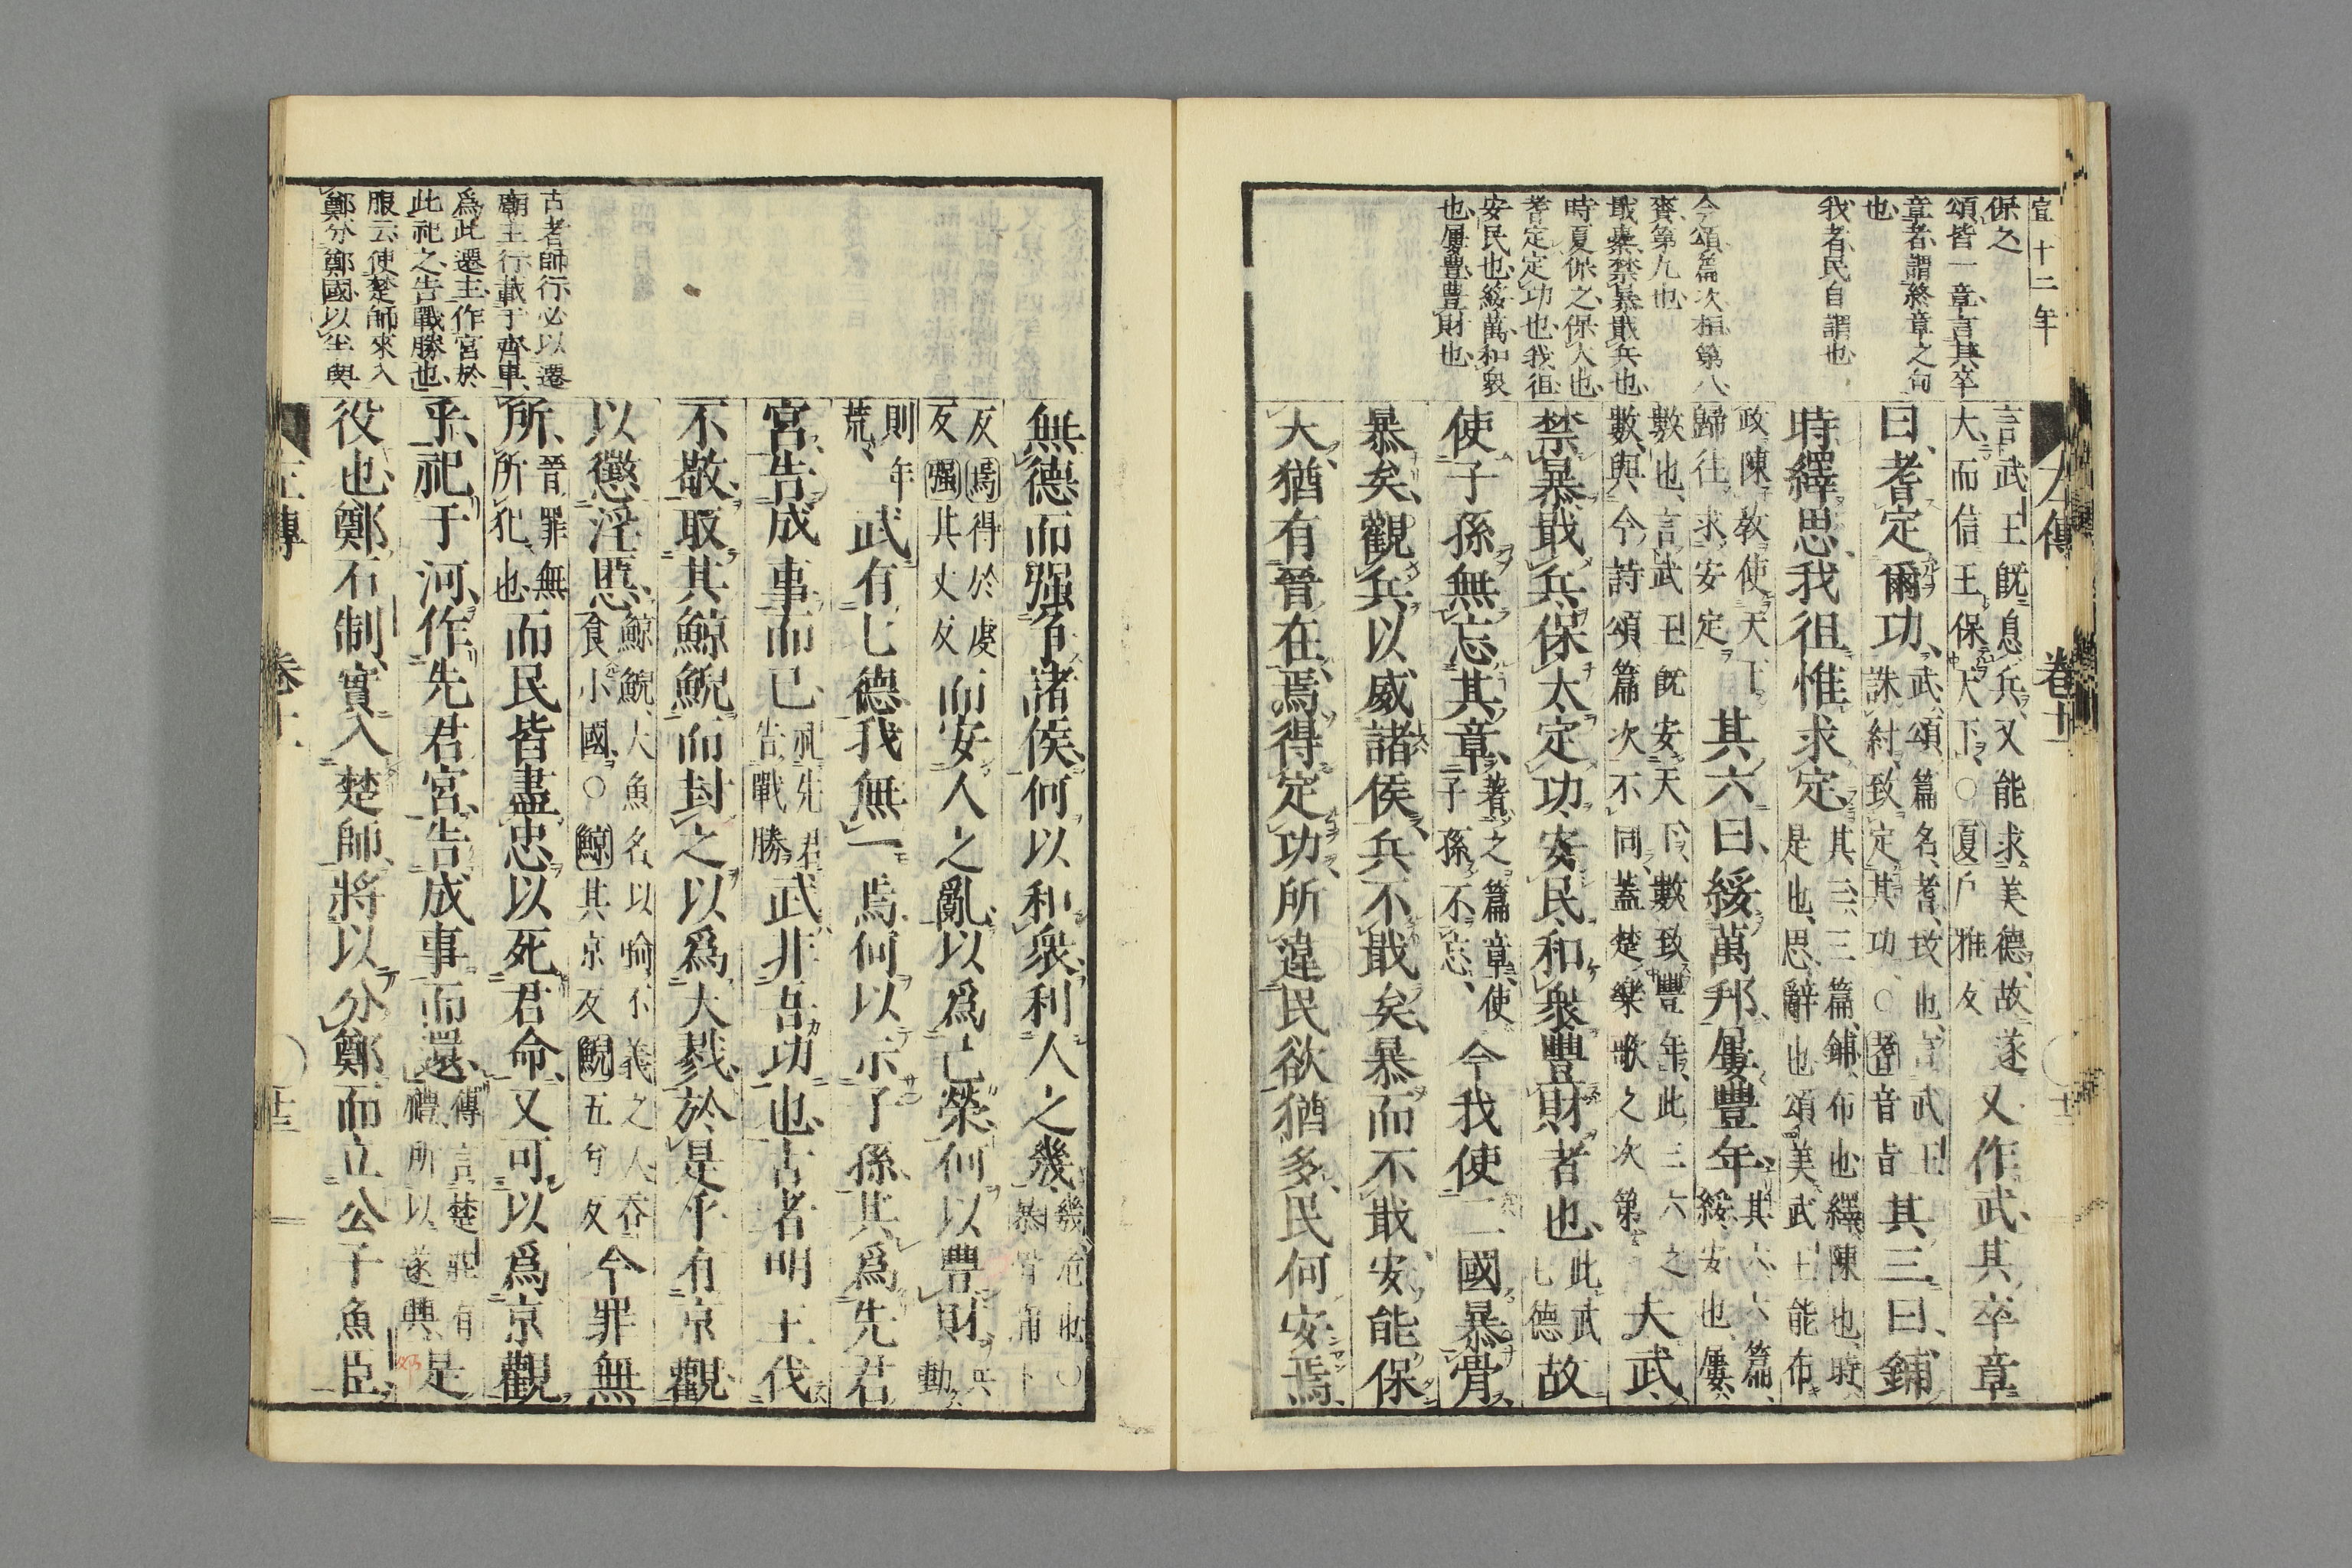 宣十二年
保之
頌皆一章言其卒
章者謂終章之句
也
我者民自謂也
今頌篇次桓第八
賚第九也
戢橐禁暴戢兵也
時夏保之保大也
耆定定功也我徂
安民也綏萬和衆
也屢豐豐財也
左傳 卷十一
言武王既息兵又能求美德故遂
大而信王保天下○夏戶雅反
又作武其卒章
曰耆定爾功
武頌篇名耆致也言武王
誅紂致定其功○耆音旨
其三曰鋪
時繹思我徂惟求定
其三三篇鋪布也繹陳也時
是也思辭也頌美武王能布
政陳敎使天下
歸往求安定
其六曰綏萬邦屢豐年
其六六篇
綏安也屢
數也言武王既安天下數致豐年此三六之
數與今詩頌篇次不同蓋楚樂歌之次第
夫武
禁暴戢兵保大定功安民和衆豐財者也
此武
七德
故
使子孫無忘其章
著之篇章使
子孫不忘
今我使二國暴骨
暴矣觀兵以威諸侯兵不戢矣暴而不戢安能保
大猶有晉在焉得定功所違民欲猶多民何安焉
古者師行必以遷
廟主行載于齊車
爲此遷主作宮於
此祀之告戰勝也
服云使楚師來入
鄭分鄭國以半與
無德而强爭諸侯何以和衆利人之幾
幾危也○
暴骨蒲卜
反焉得於虔
反强其丈反
而安人之亂以爲己榮何以豐財
兵
動
則年
荒
武有七德我無一焉何以示子孫其爲先君
宮告成事而已
祀先君
告戰勝
武非吾功也古者明王伐
不敬取其鯨鯢而封之以爲大戮於是乎有京觀
以懲淫慝
鯨鯢大魚名以喻不義之人吞
食小國○鯨其京反鯢五兮反
今罪無
所
晉罪無
所犯也
而民皆盡忠以死君命又可以爲京觀
乎祀于河作先君宮告成事而還
傳言楚莊有
禮所以遂興
是
役也鄭石制實入楚師將以分鄭而立公子魚臣
左傳 卷十一